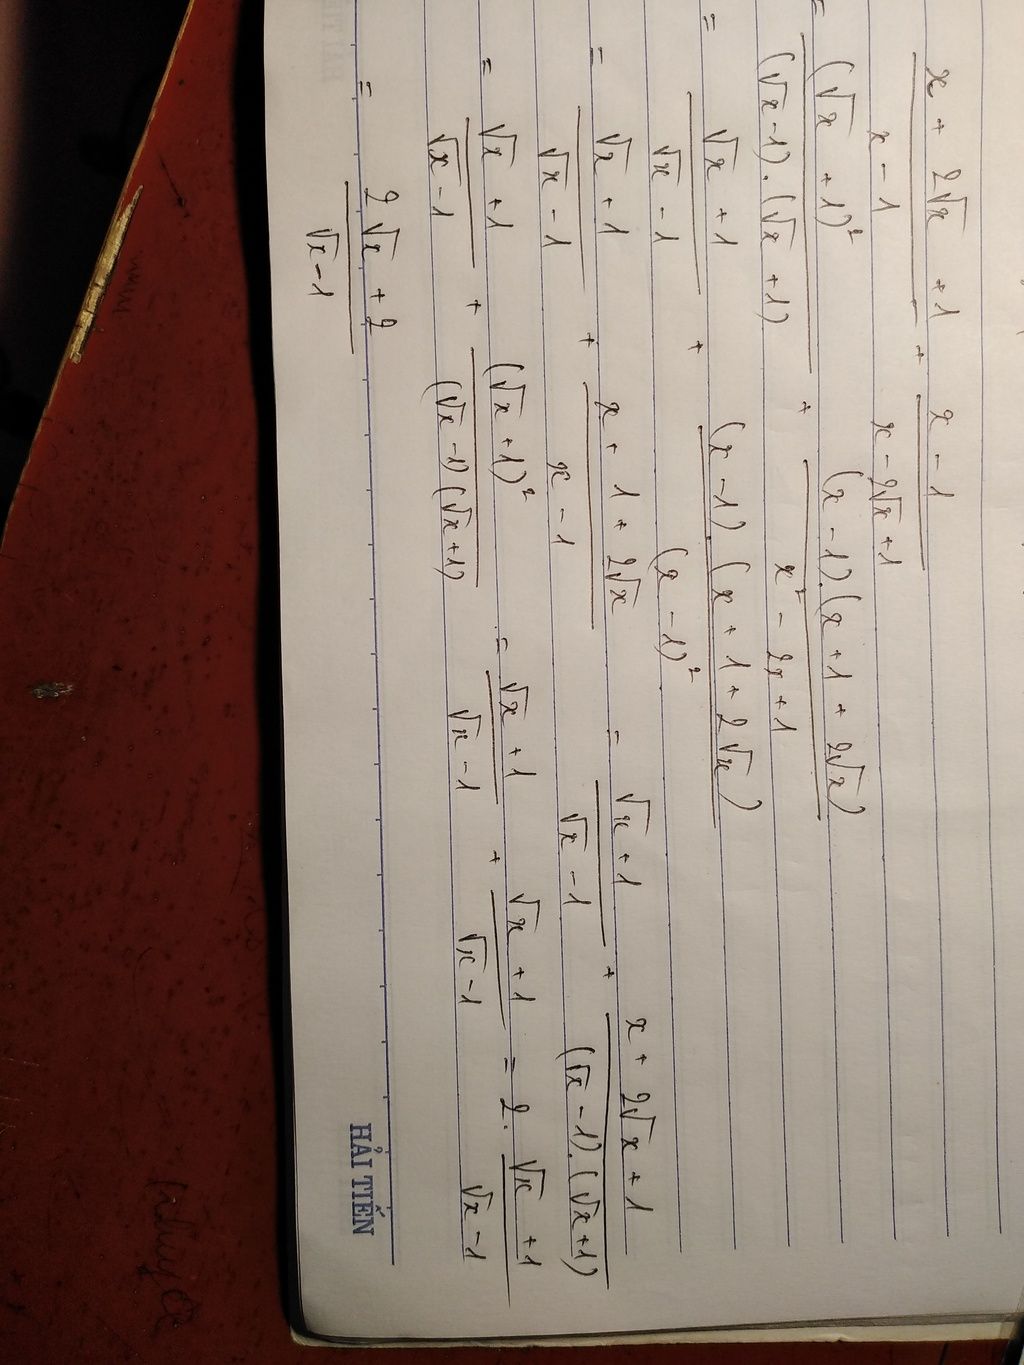 x + 2√x + 1 / x - 1 + x - 1 / x - 2√x + 1
= (√x + 1)² / (√x - 1).(√x + 1) + (x - 1).(x + 1 + 2√x) / x² - 2x + 1
= √x + 1 / √x - 1 + (x - 1).(x + 1 + 2√x) / (x - 1)²
= √x + 1 / √x - 1 + x + 1 + 2√x / x - 1 = √x + 1 / √x - 1 + x + 2√x + 1 / (√x - 1).(√x + 1)
= √x + 1 / √x - 1 + (√x + 1)² / (√x - 1)(√x + 1) = √x + 1 / √x - 1 + √x + 1 / √x - 1 = 2. √x + 1 / √x - 1
= 2√x + 2 / √x - 1
HẢI TIẾN